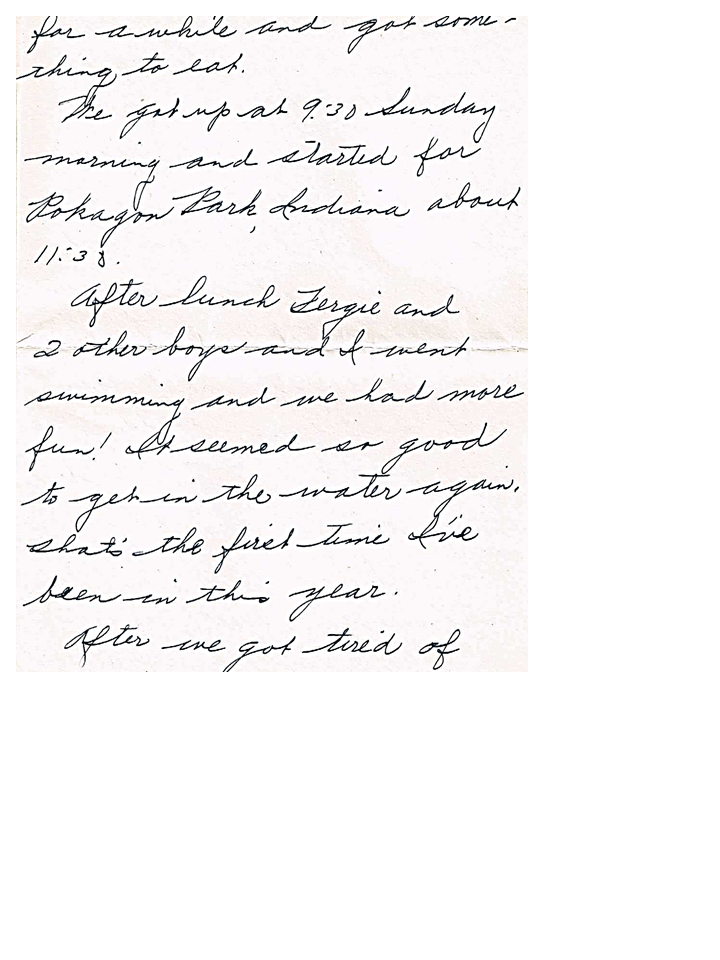 for a while and got some-
thing to eat.
We got up at 9:30 Sunday
morning and started for
Pokagon Park, Indiana about
11:30.
After lunch Fergie and
2 other boys and I went
swimming and we had more
fun! It seemed so good
to get in the water again.
that's the first time I've
been in this year.
After we got tired of